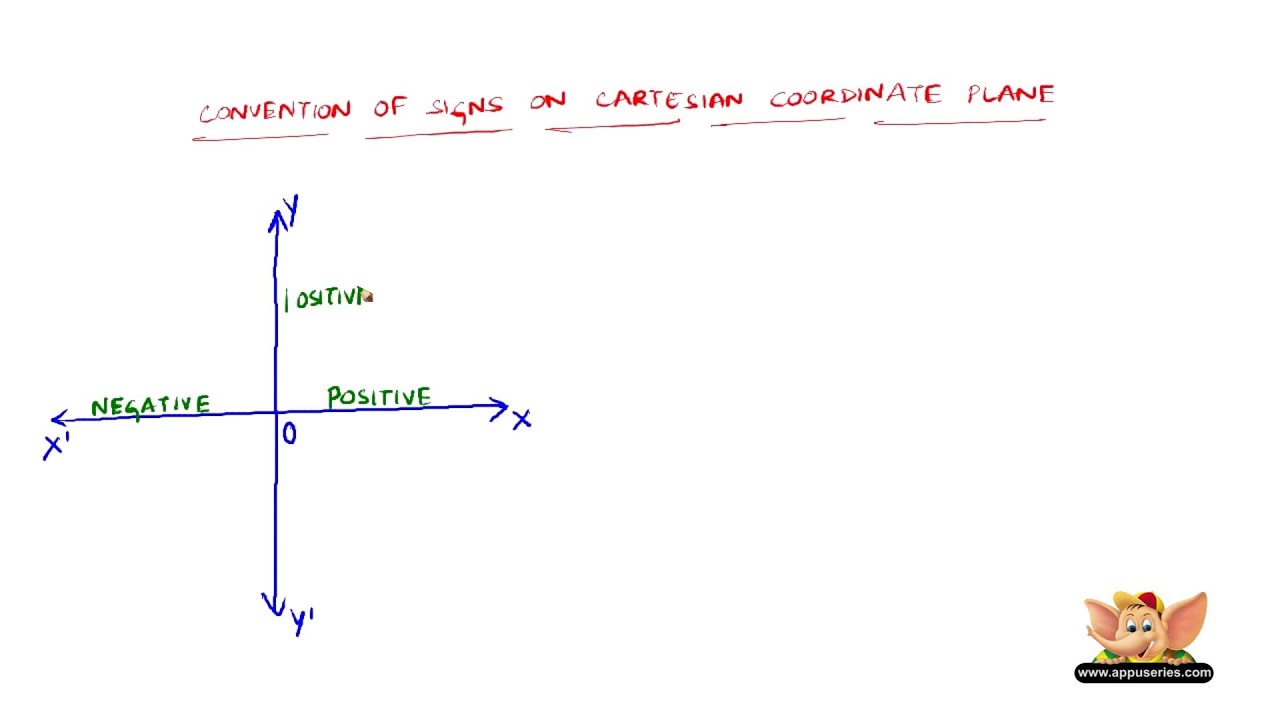 CONVENTION OF SIGNS ON CARTESIAN COORDINATE PLANE
Y
NEGATIVE
POSITIVE
X'
O
X
Y'
www.appuseries.com